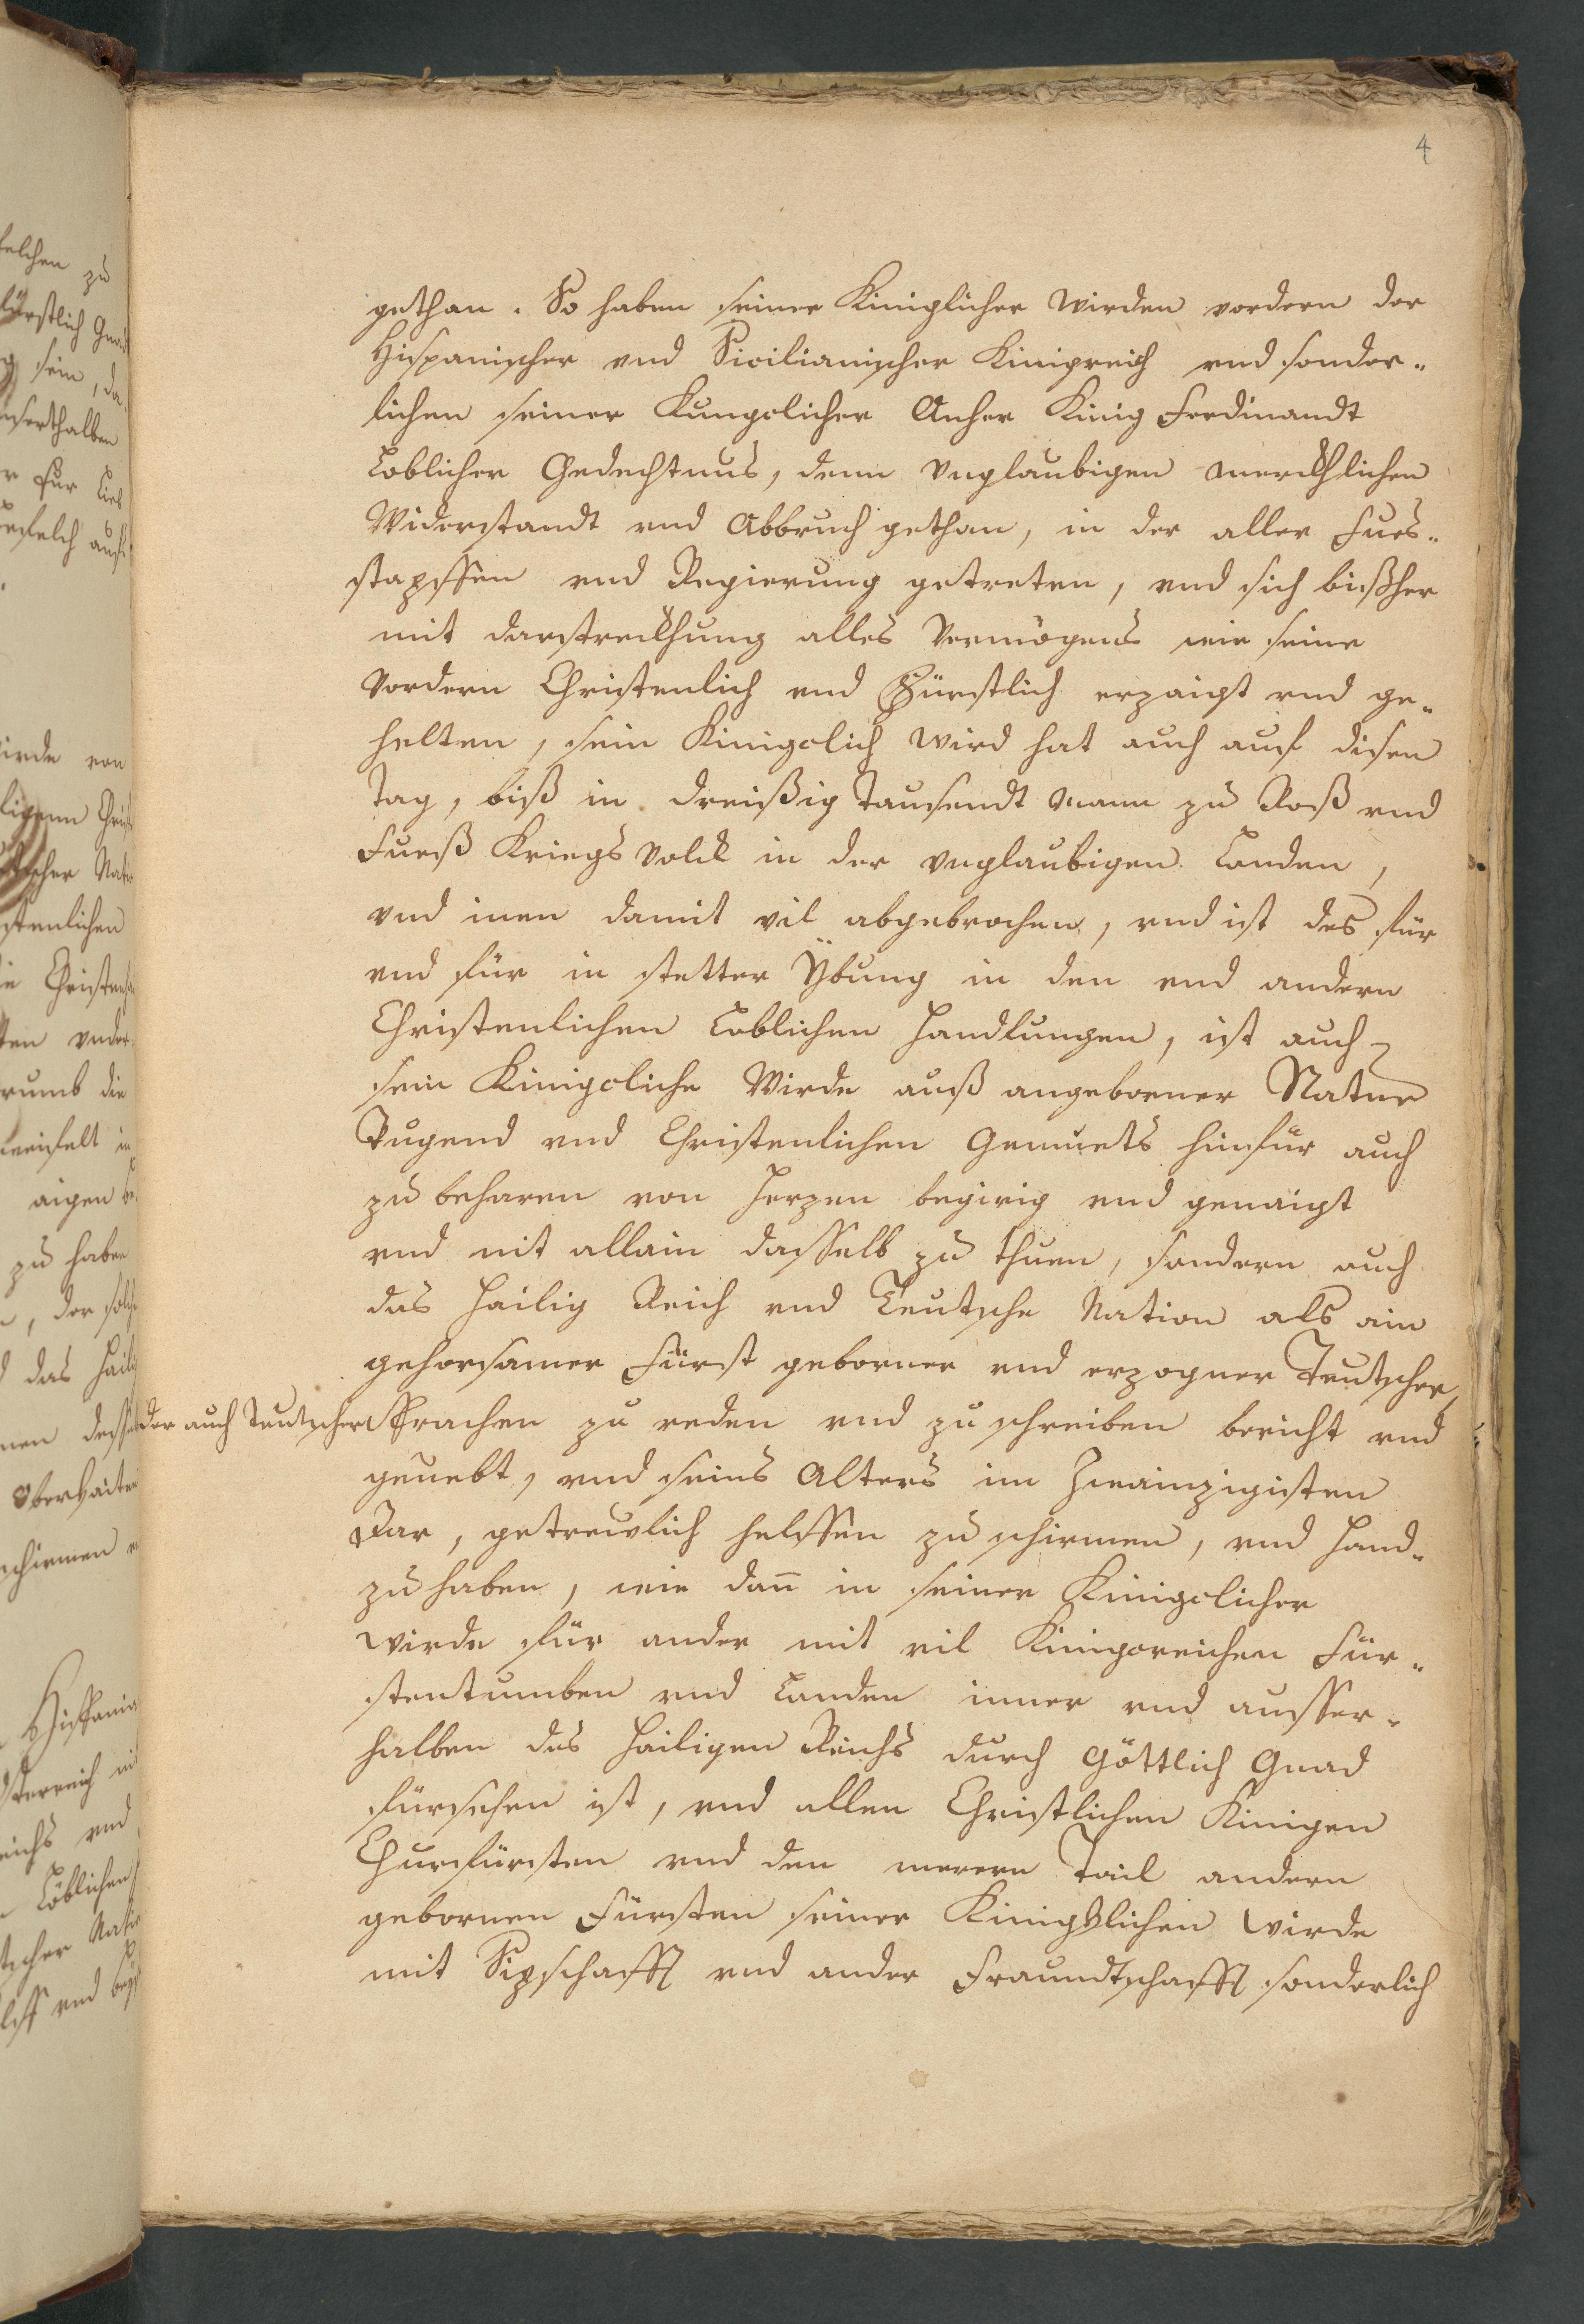 4
gethan. So haben seiner Kiniglicher Wirden vordern der
Hispanischer vnd Sicilianischer Kinigreich vnd sonder-
lichen seiner Kungclicher Anher Kinig Ferdinandt
Loblicher Gedechtnus, denn Vnglaubigen merckhlichen
Widerstandt vnd Abbruch gethan, in der aller Fues-
stapffen vnd Regierung getreten, vnd sich bißher
mit darstreckhung alles Vermögens wie seine
Vordern Christenlich vnd Fürstlich erzaigt vnd ge-
helten, sein Kinigclich Wird hat auch auf disen
Tag, biß in dreißig Tausendt Mann zu Roß vnd
Fueß Kriegs Volck in der Vnglaubigen Landen,
vnd inen damit vil abgebrochen, vnd ist des für
vnd für in stetter Ÿbung in den vnd andern
Christenlichen Loblichen Handlungen, ist auch
sein Kinigcliche Wirde auß angeborner Natur
Tugend vnd Christenlichen Gemuets hinfür auch
zu beharen von Herzen begirig vnd genaigt
vnd nit allain dasselb zu thuen, sondern auch
das Hailig Reich vnd Teutsche Nation als ain
gehorsamer Fürst geborner vnd erzogner Teutscher,
der auch Teutscher Sprachen zu reden vnd zu schreiben bericht vnd
geuebt, vnd seins Alters im Zwainzigisten
Jar, getrewlich helffen zu schirmen, vnd Hand-
zu haben, wie dan̄ in seiner Kinigclicher
Wirde für ander mit vil Kinigreichen Für-
stentumben vnd Landen inner vnd ausser-
halben des Hailigen Reichs durch Göttlich Gnad
fürsehen ist, vnd allen Christlichen Kinigen
Churfürsten vnd den merern Tail andern
gebornen Fürsten seiner Kinigklichen Wirde
mit Sipschafft vnd ander Fraundtschafft sonderlich